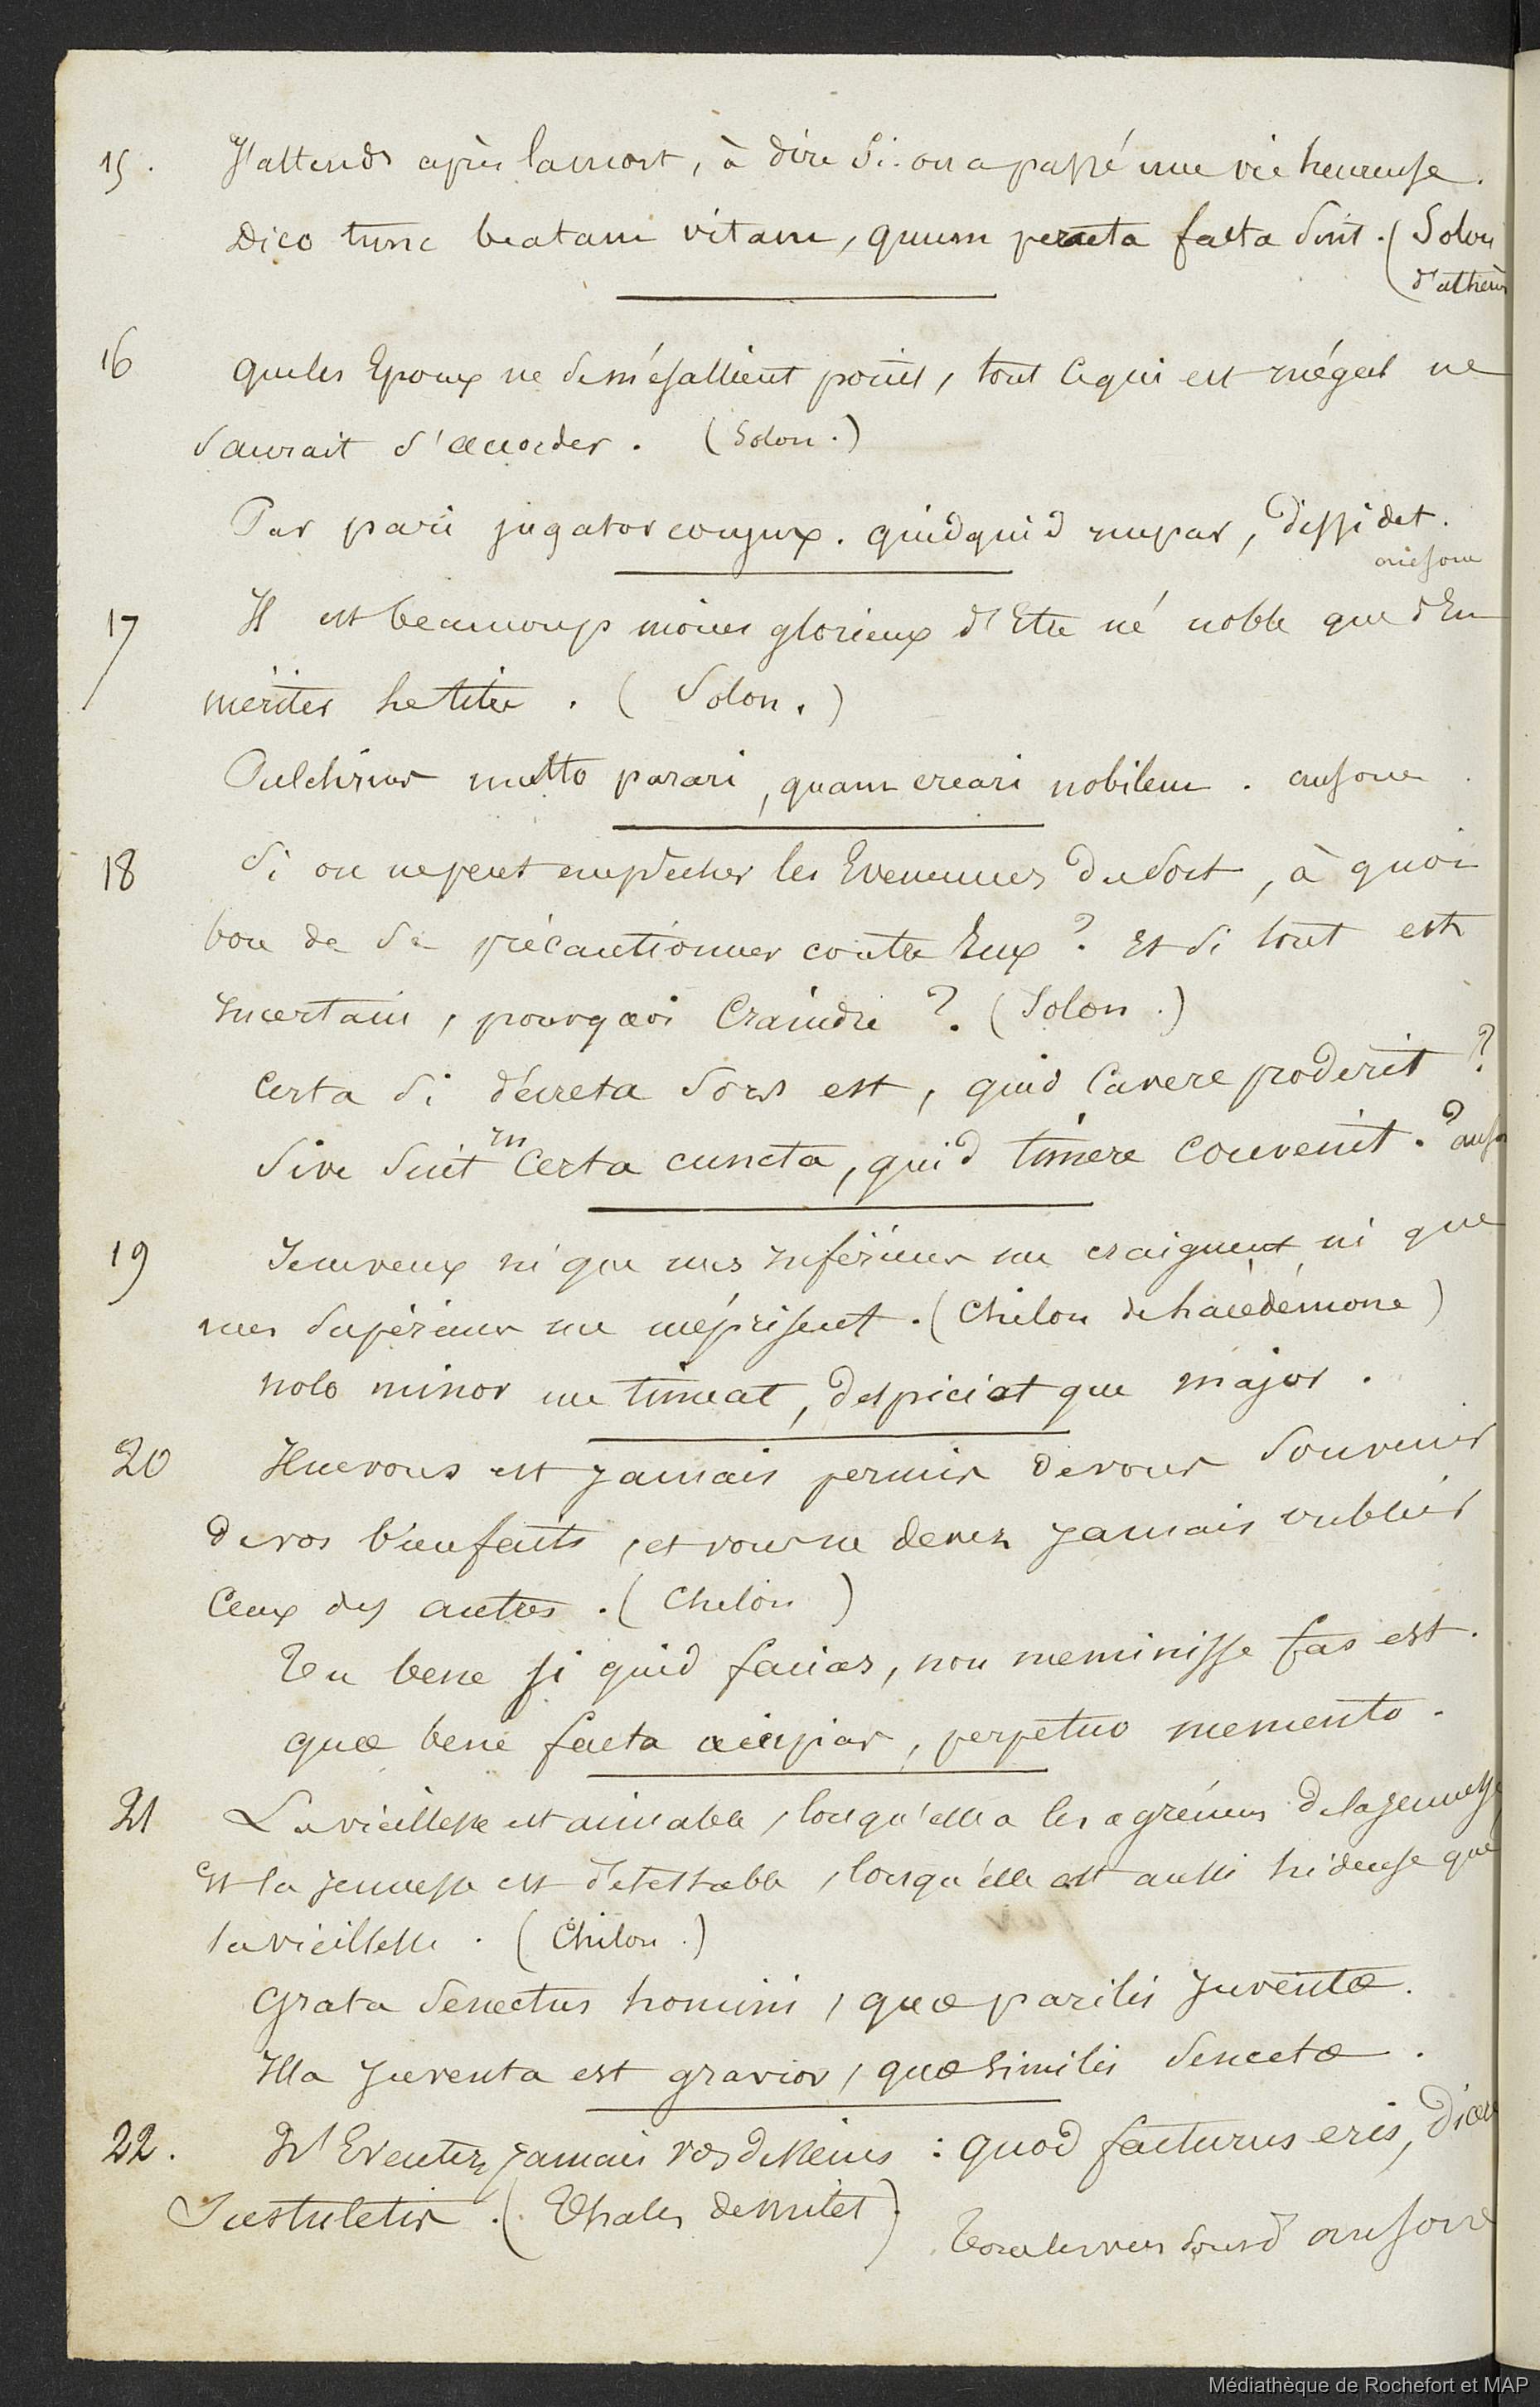 15. J'attends après la mort, à dire si on a passé une vie heureuse.
Dico tunc beatam vitam, quum peracta facta sint. (Solon
d'athèn
16 que les Epoux ne se mésallient point, tout ce qui est inégal ne
saurait s'accorder. (Solon.)
Par pari jugator conjux. quidquid impar, dissidet.
ausone
17 Il est beaucoup moins glorieux d'Etre né noble que d'En
mériter le titre. (Solon.)
Pulchrius multo parari, quam creari nobilem. ausone
18 Si on ne peut empêcher les Evenemens du sort, à quoi
bon de se précautionner contre Eux? Et si tout est
incertain, pourquoi craindre? (Solon.)
Certa si décreta sors est, quid cavere proderit?
Sive sint incerta cuncta, quid timere convenit? auso
19 Je ne veux ni que mes inférieurs me craignent ni que
mes supérieurs me méprisent. (Chilon de Lacédémone)
nolo minor me timeat, despiciat que major.
20 Il ne vous est jamais permis de vous souvenir
de vos bienfaits, et vous ne devez jamais oublier
ceux des autres. (Chilon)
Tu bene si quid facias, non meminisse fas est.
quæ bene facta accipias, perpetuo memento.
21 La vieillesse est aimable, lorsqu'elle a les agrémens de la jeunesse
Et la jeunesse est détestable, lorsqu'elle est aussi hideuse que
la vieillesse. (Chilon.)
Grata senectus homini, quæ parilis juventæ.
Illa juventa est gravior, quæ similis senectæ.
22. N'Eventez jamais vos desseins: quod facturus eris, dicer
sustuleris. (Thales de milet) Tous les vers sont d'ausone
Médiathèque de Rochefort et MAP